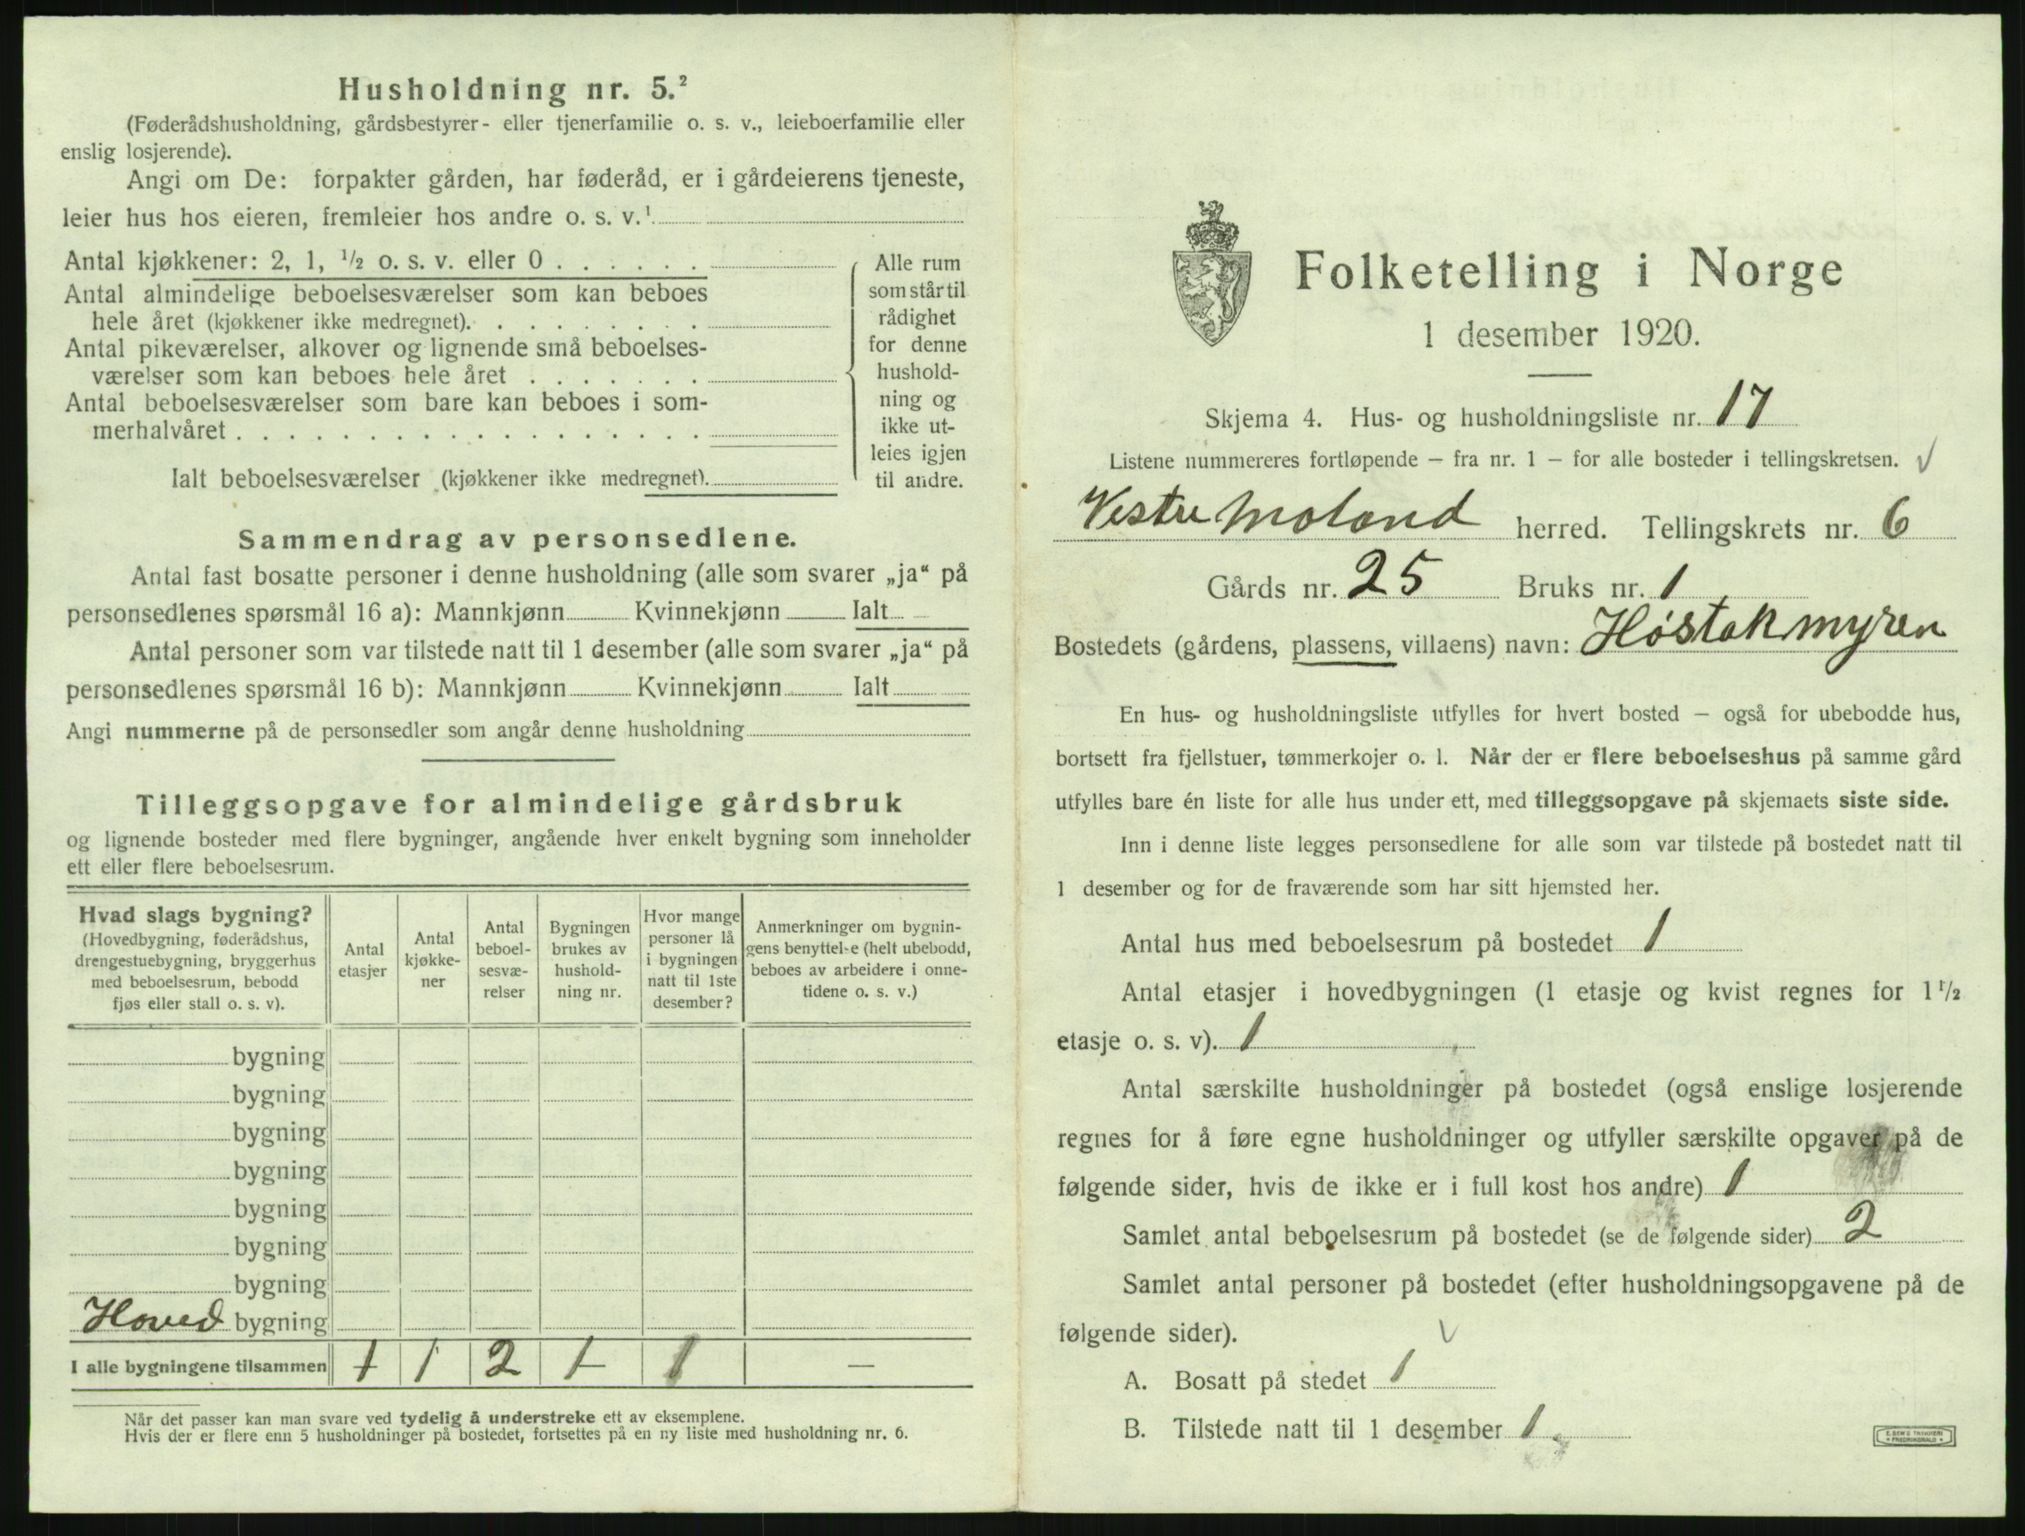 Husholdning nr. 5.²
(Føderådshusholdning, gårdsbestyrer- eller tjenerfamilie o. s. v., leieboerfamilie eller
enslig losjerende).
Angi om De: forpakter gården, har føderåd, er i gårdeierens tjeneste,
leier hus hos eieren, fremleier hos andre o. s. v.¹
Antal kjøkkener: 2, 1, ¹/₂ o. s. v. eller 0 . . . . . .
Antal almindelige beboelsesværelser som kan beboes
hele året (kjøkkener ikke medregnet). . . . . . . . .
Antal pikeværelser, alkover og lignende små beboelses-
værelser som kan beboes hele året . . . . . . .
Antal beboelsesværelser som bare kan beboes i som-
merhalvåret . . . . . . . . . . . . . . . . . .
Ialt beboelsesværelser (kjøkkener ikke medregnet).
Alle rum
som står til
rådighet
for denne
hushold-
ning og
ikke ut-
leies igjen
til andre.
Sammendrag av personsedlene.
Antal fast bosatte personer i denne husholdning (alle som svarer „ja“ på
personsedlenes spørsmål 16 a): Mannkjønn Kvinnekjønn Ialt
Antal personer som var tilstede natt til 1 desember (alle som svarer „ja“ på
personsedlenes spørsmål 16 b): Mannkjønn Kvinnekjønn Ialt
Angi nummerne på de personsedler som angår denne husholdning
Tilleggsopgave for almindelige gårdsbruk
og lignende bosteder med flere bygninger, angående hver enkelt bygning som inneholder
ett eller flere beboelsesrum.
Hvad slags bygning?
(Hovedbygning, føderådshus,
drengestuebygning, bryggerhus
med beboelsesrum, bebodd
fjøs eller stall o. s. v).
Antal
etasjer
Antal
kjøkke-
ner
Antal
beboel-
sesvæ-
relser
Bygningen
brukes av
hushold-
ning nr.
Hvor mange
personer lå
i bygningen
natt til 1ste
desember?
Anmerkninger om bygnin-
gens benyttelse (helt ubebodd,
beboes av arbeidere i onne-
tidene o. s. v.)
bygning
bygning
bygning
bygning
bygning
bygning
bygning
Hoved bygning
I alle bygningene tilsammen 1 1 2 1 1 —
Når det passer kan man svare ved tydelig å understreke ett av eksemplene.
Hvis der er flere enn 5 husholdninger på bostedet, fortsettes på en ny liste med husholdning nr. 6.
Folketelling i Norge
1 desember 1920.
Skjema 4. Hus- og husholdningsliste nr. 17
Listene nummereres fortløpende – fra nr. 1 – for alle bosteder i tellingskretsen. √
Vestre Moland herred. Tellingskrets nr. 6
Gårds nr. 25 Bruks nr. 1
Bostedets (gårdens, plassens, villaens) navn: Høstakmyren
En hus- og husholdningsliste utfylles for hvert bosted – også for ubebodde hus,
bortsett fra fjellstuer, tømmerkojer o. l. Når der er flere beboelseshus på samme gård
utfylles bare én liste for alle hus under ett, med tilleggsopgave på skjemaets siste side.
Inn i denne liste legges personsedlene for alle som var tilstede på bostedet natt til
1 desember og for de fraværende som har sitt hjemsted her.
Antal hus med beboelsesrum på bostedet 1
Antal etasjer i hovedbygningen (1 etasje og kvist regnes for 1 ¹/₂
etasje o. s. v). 1
Antal særskilte husholdninger på bostedet (også enslige losjerende
regnes for å føre egne husholdninger og utfyller særskilte opgaver på de
følgende sider, hvis de ikke er i full kost hos andre) 1
Samlet antal beboelsesrum på bostedet (se de følgende sider) 2
Samlet antal personer på bostedet (efter husholdningsopgavene på de
følgende sider). √
A. Bosatt på stedet 1
B. Tilstede natt til 1 desember 1